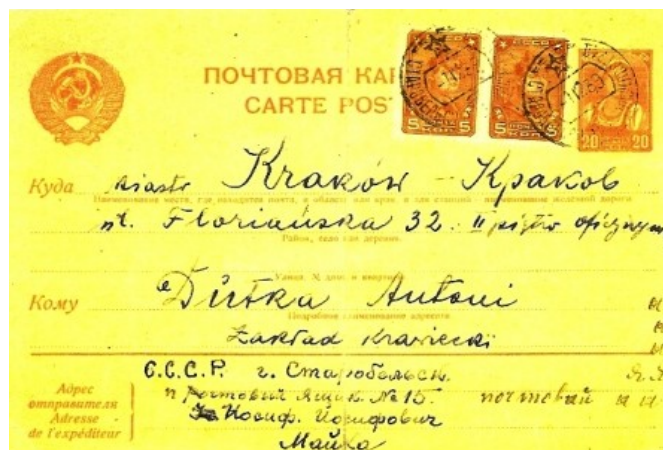 ПОЧТОВАЯ КАР
CARTE POST
5 5 5 5 20 20
Куда miasto Kraków - Краков
Наименование места, где находится почта, и области или края, а для станций - наименование железной дороги
ul. Floriańska 32. II piętro oficyna
Район, село или деревня.
Улица, № дома и квартиры
Кому Dutka Antoni
Подробное наименование адресата
Zakład krawiecki
С.С.С.Р. г. Старобельск.
Адрес
отправителя
Adresse
de l'expéditeur
почтовый ящик № 15. почтовый
Иосиф. Иосифович
Майка